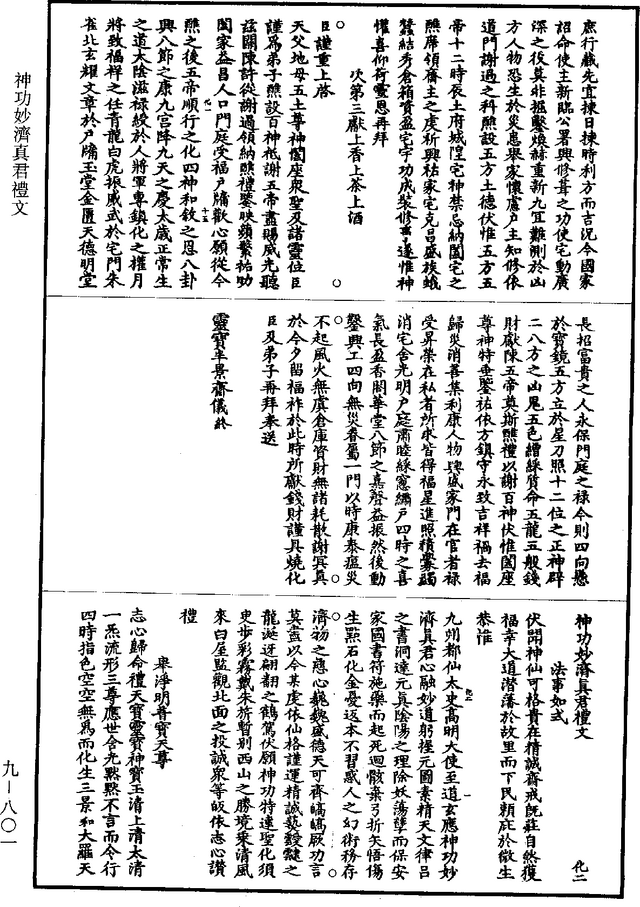 庶行藏先宜揀日揀時利方而吉況今國家
詔命使主新臨公署興修葺之功使宅動廣
深之役莫非掘鑿煥赫重新九宜難測於山
方人物恐生於災患舉家懷慮戶主知修依
道門謝過之科醮設五方土德伏惟五方五
帝十二時辰土府城隍宅神禁忌納閤宅之
醮席領齋主之虔祈興祐家宅克昌盛族蛾
蠶結秀倉箱資盈宅宇功成裝修事遂惟神
懽喜仰荷靈恩再拜
次第三獻上香上茶上酒
臣謹重上啓
天父地母五土尊神閤座衆聖及諸靈位臣
謹爲弟子醮設百神祗謝五帝盡賜威光聽
茲關陳許從謝過領納醮禮鑒映蘋蘩祐助
閤家益昌人口門庭受福戶牖歡心願從今
醮之後五帝順行之化四神和敘之恩八卦
興八節之康九宮降九天之慶太歲正常生
之道太陰滋祿綬於人將軍專鎮化之權月
將致福祥之任青龍白虎振威武於宅門朱
雀北玄耀文章於戶牖玉堂金匱天德明堂
長招富貴之人永保門庭之祿今則四向懸
於寶鏡五方立於星刀照十二位之正神辟
二八方之山鬼五色繒綵質命五龍五般錢
財獻陳五帝奠斯醮禮以謝百神伏惟閤座
尊神特垂鑒祐依方鎮守永致吉祥禍去福
歸災消善集利康人物興盛家門在官者祿
受昇榮在私者所求皆得福星進照積釁蠲
消宅舍光明戶庭肅睦綵窓繡戶四時之喜
氣長盈香閤華堂八節之嘉聲益振然後動
鑿興工四向無災眷屬一門以時康泰瘟災
不起風火無虞倉庫資財無諸耗散謝冥真
於今夕留福祚於此時所獻錢財謹具燒化
臣及弟子再拜奉送
靈寶半景齋儀終
神功妙濟真君禮文 化二
法事如式
伏聞神仙可格貴在精誠齋戒旣莊自然獲
福幸大道潛藩於故里而下民頼庇於微生
恭惟
九州都仙太史高明大使至道玄應神功妙
濟真君心融妙道躬握元圖素精天文律呂
之書洞達元真陰陽之理除妖蕩孽而保安
家國書符施藥而起死迴骸棄弓折矢悟傷
生點石化金憂返本不習惑人之幻術務存
濟物之慈心巍巍盛德天可齊嵪嵪厥功言
莫盡以今某虔依仙格謹運精誠藝靉靆之
龍涎迓翩翻之鶴駕伏願神功特達聖化須
史步彩霧戴朱旂暫別西山之勝境乘清風
來白屋監觀北面之投誠衆等皈依志心讚
禮
皋淨明普寶天尊
志心歸命禮天寶靈寶神寶玉清上清太清
一炁流形三尊應世含光默默不言而令行
四時指色空空無爲而化生三景和大羅天
神功妙濟真君禮文
九-八〇一